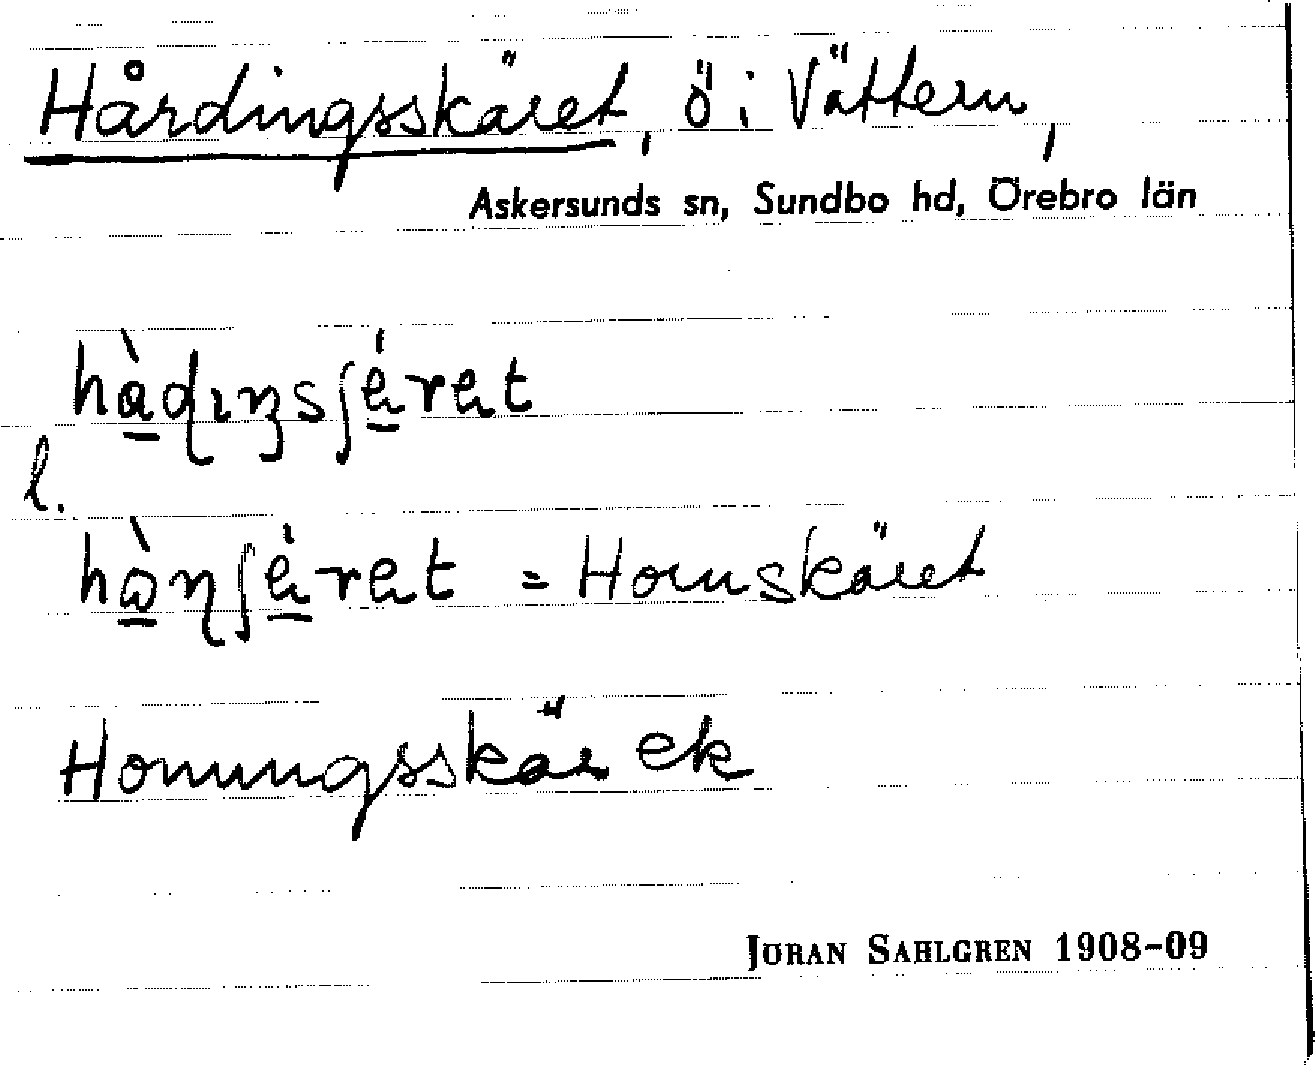 Hårdingsskäret, ö i Vättern,
Askersunds sn, Sundbo hd, Örebro län
l.
= Hornskäret
Honungsskär ek
JÖRAN SAHLGREN 1908-09